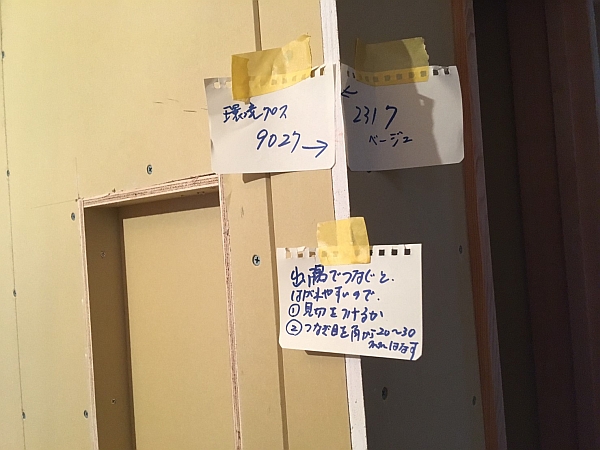 環境クロス
9027→
←
2317
ベージュ
出隅でつなじと、
はがれやすいので、
①見切をつけるか
②つなぎ目を角から20~30
mmはなす